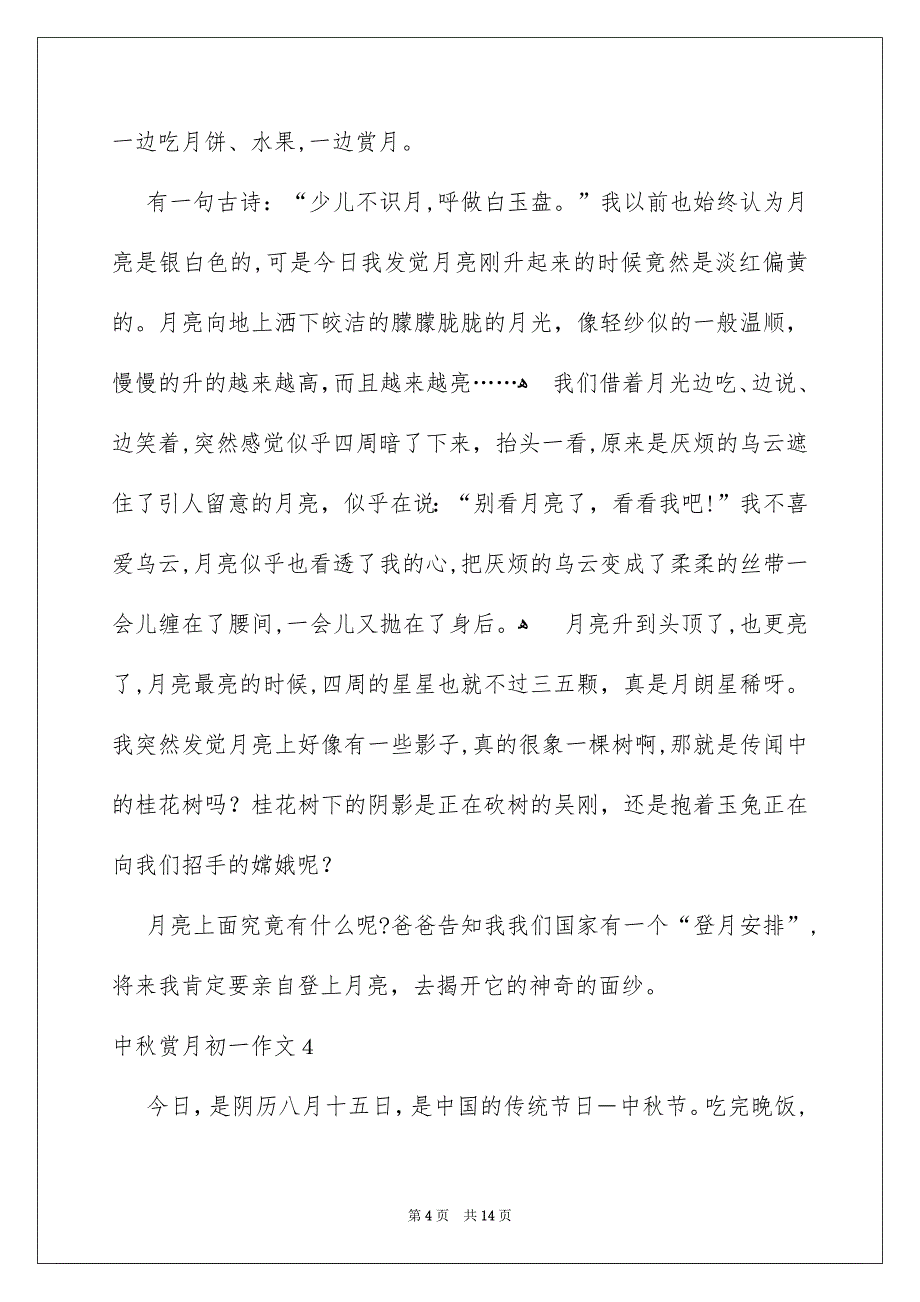 一边吃月饼、水果,一边赏月。
有一句古诗：“少儿不识月,呼做白玉盘。”我以前也始终认为月
亮是银白色的,可是今日我发觉月亮刚升起来的时候竟然是淡红偏黄
的。月亮向地上洒下皎洁的朦朦胧胧的月光，像轻纱似的一般温顺，
慢慢的升的越来越高,而且越来越亮……ﻫ 我们借着月光边吃、边说、
边笑着,突然感觉似乎四周暗了下来，抬头一看,原来是厌烦的乌云遮
住了引人留意的月亮，似乎在说：“别看月亮了，看看我吧!”我不喜
爱乌云,月亮似乎也看透了我的心,把厌烦的乌云变成了柔柔的丝带一
会儿缠在了腰间,一会儿又抛在了身后。ﻫ 月亮升到头顶了,也更亮
了,月亮最亮的时候,四周的星星也就不过三五颗，真是月朗星稀呀。
我突然发觉月亮上好像有一些影子,真的很象一棵树啊,那就是传闻中
的桂花树吗？桂花树下的阴影是正在砍树的吴刚，还是抱着玉兔正在
向我们招手的嫦娥呢？
月亮上面究竟有什么呢?爸爸告知我我们国家有一个“登月安排”,
将来我肯定要亲自登上月亮，去揭开它的神奇的面纱。
中秋赏月初一作文 4
今日，是阴历八月十五日，是中国的传统节日－中秋节。吃完晚饭,
第 4 页 共 14 页